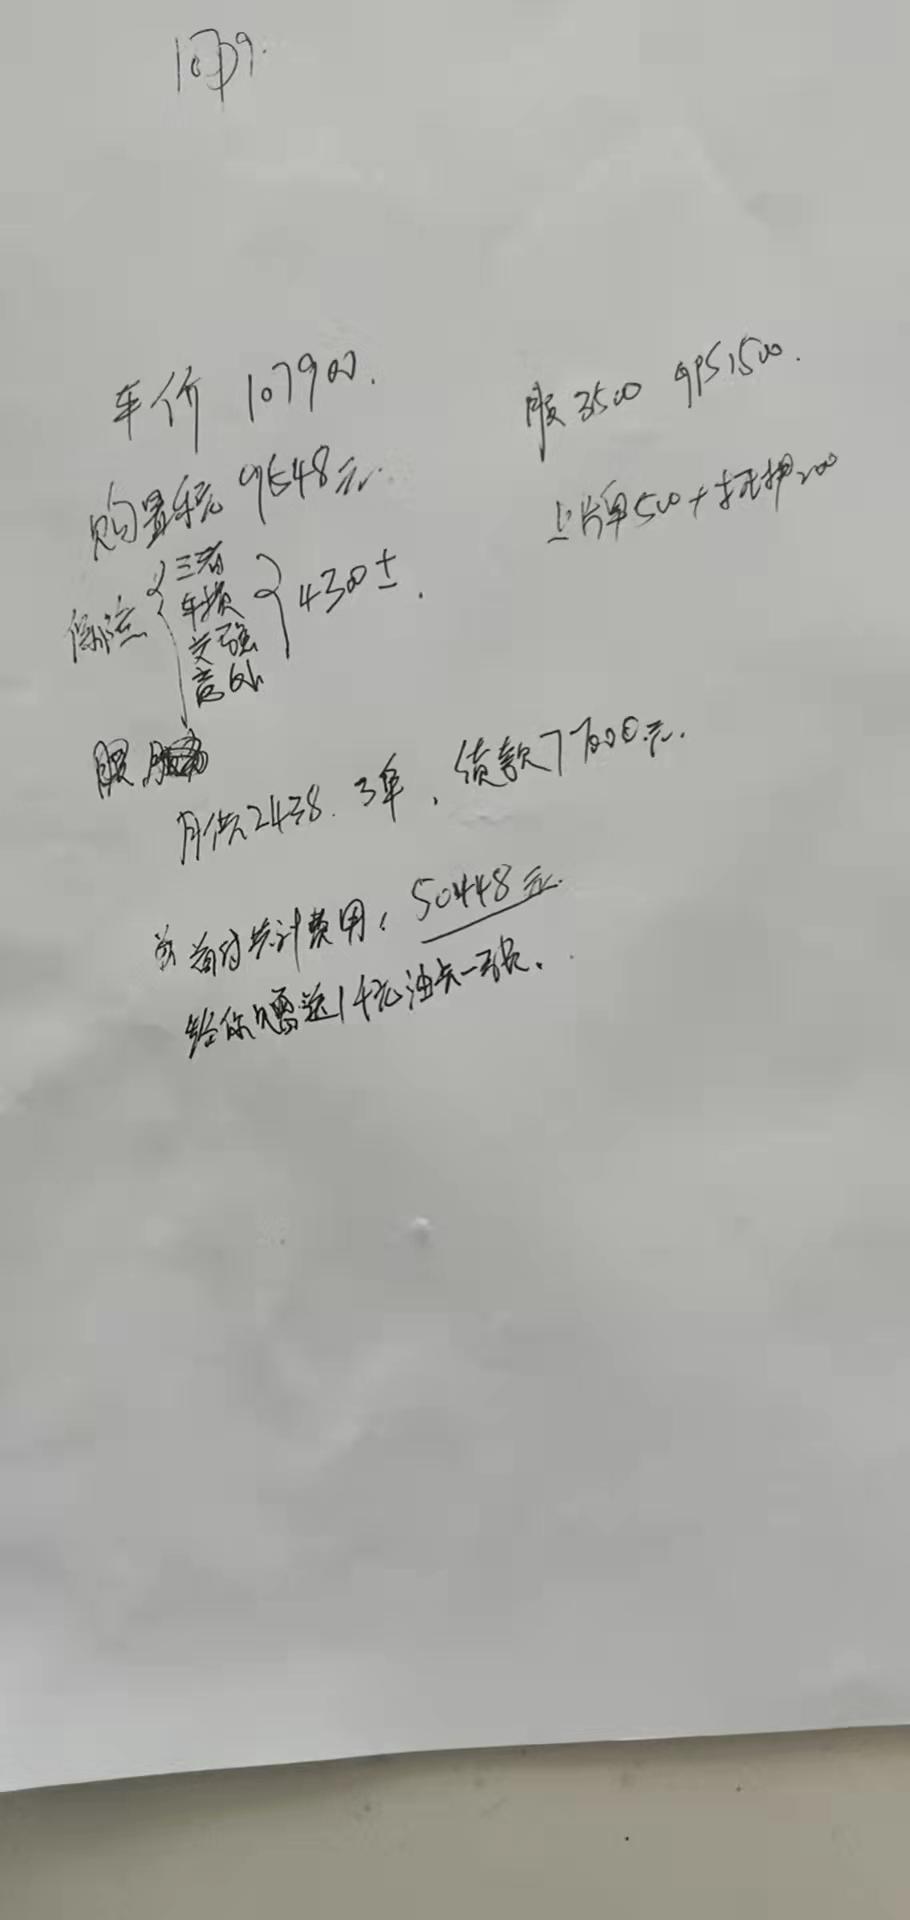 车价 107900.
服3500 GPS1500.
购置税 9548元.
上牌500+抵押200
保险{三者 车损 交强 意外}4300±.
服
月供2438.3年，贷款77000元.
首付共计费用：50448元.
给你申请送1千元油卡一张.